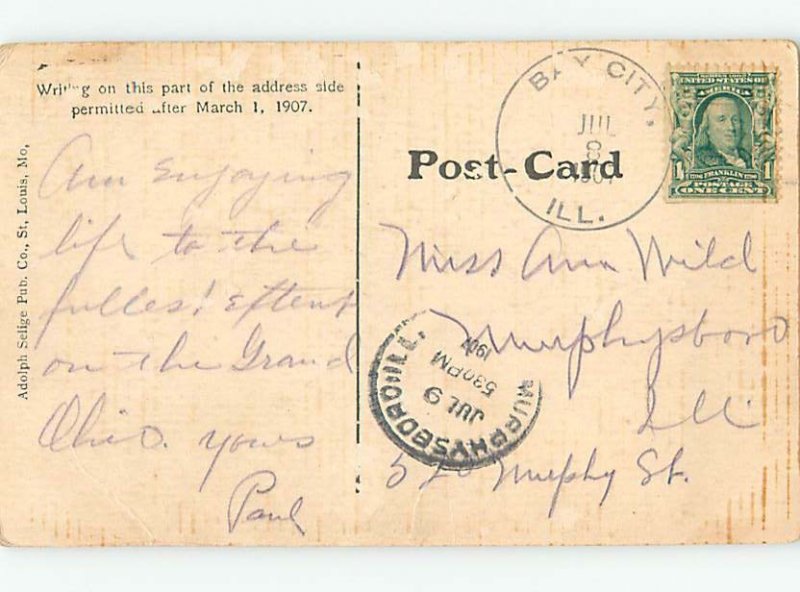 Writing on this part of the address side
permitted after March 1, 1907.
Post-Card
BAY CITY,
JUL
8
1907
ILL.
UNITED STATES OF
AMERICA
1 FRANKLIN 1
POSTAGE
ONE CENT
Adolph Selige Pub. Co., St. Louis, Mo,
Am enjoying
life to the
fullest extent
on the Grand
Ohio. yours
Paul
Miss Ann Wild
Murphysboro
Ill
520 Murphy St.
MURPHYSBORO ILL.
JUL 9
530PM
1907